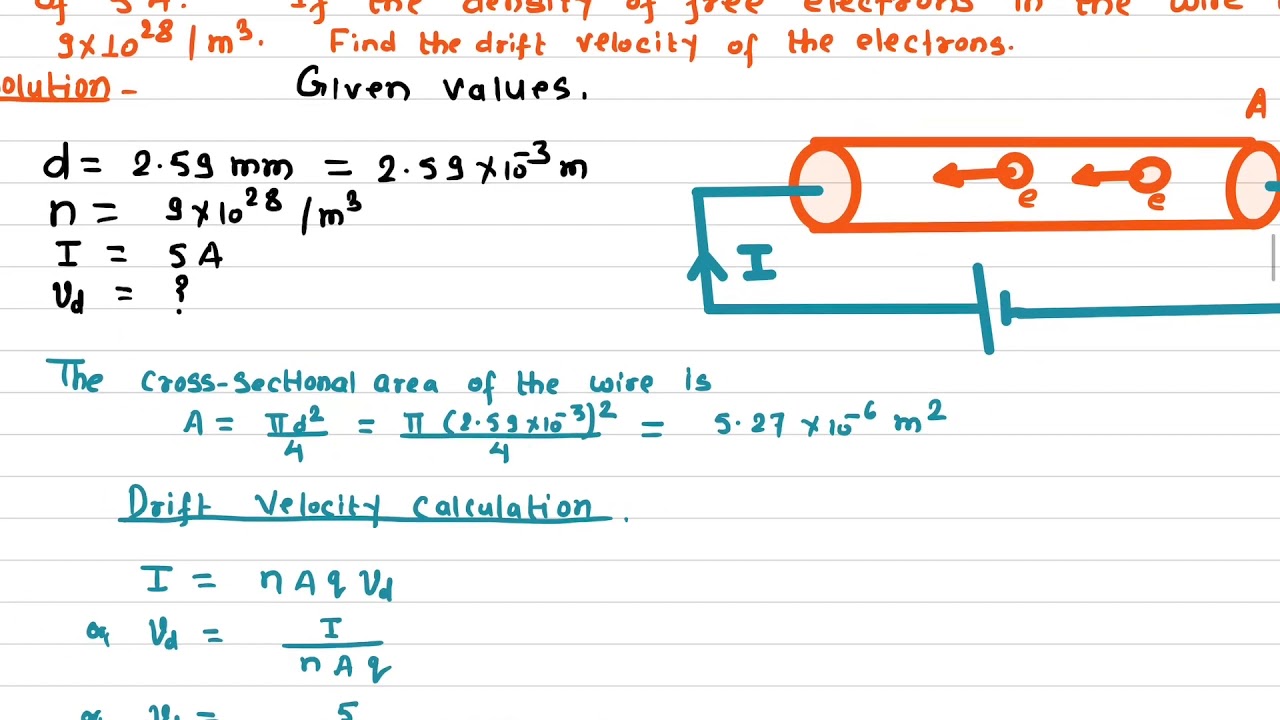 of 5A. If the density of free electrons in the wire
9×10²⁸ / m³. Find the drift velocity of the electrons.
olution -
Given values.
A
d = 2.59 mm = 2.59 × 10⁻³ m
n = 9×10²⁸ / m³
I = 5 A
v_d = ?
e e
I
The cross-sectional area of the wire is
A = πd²/4 = π (2.59×10⁻³)²/4 = 5.27 × 10⁻⁶ m²
Drift Velocity Calculation.
I = n A q v_d
or v_d = I / n A q
or v_d = 5